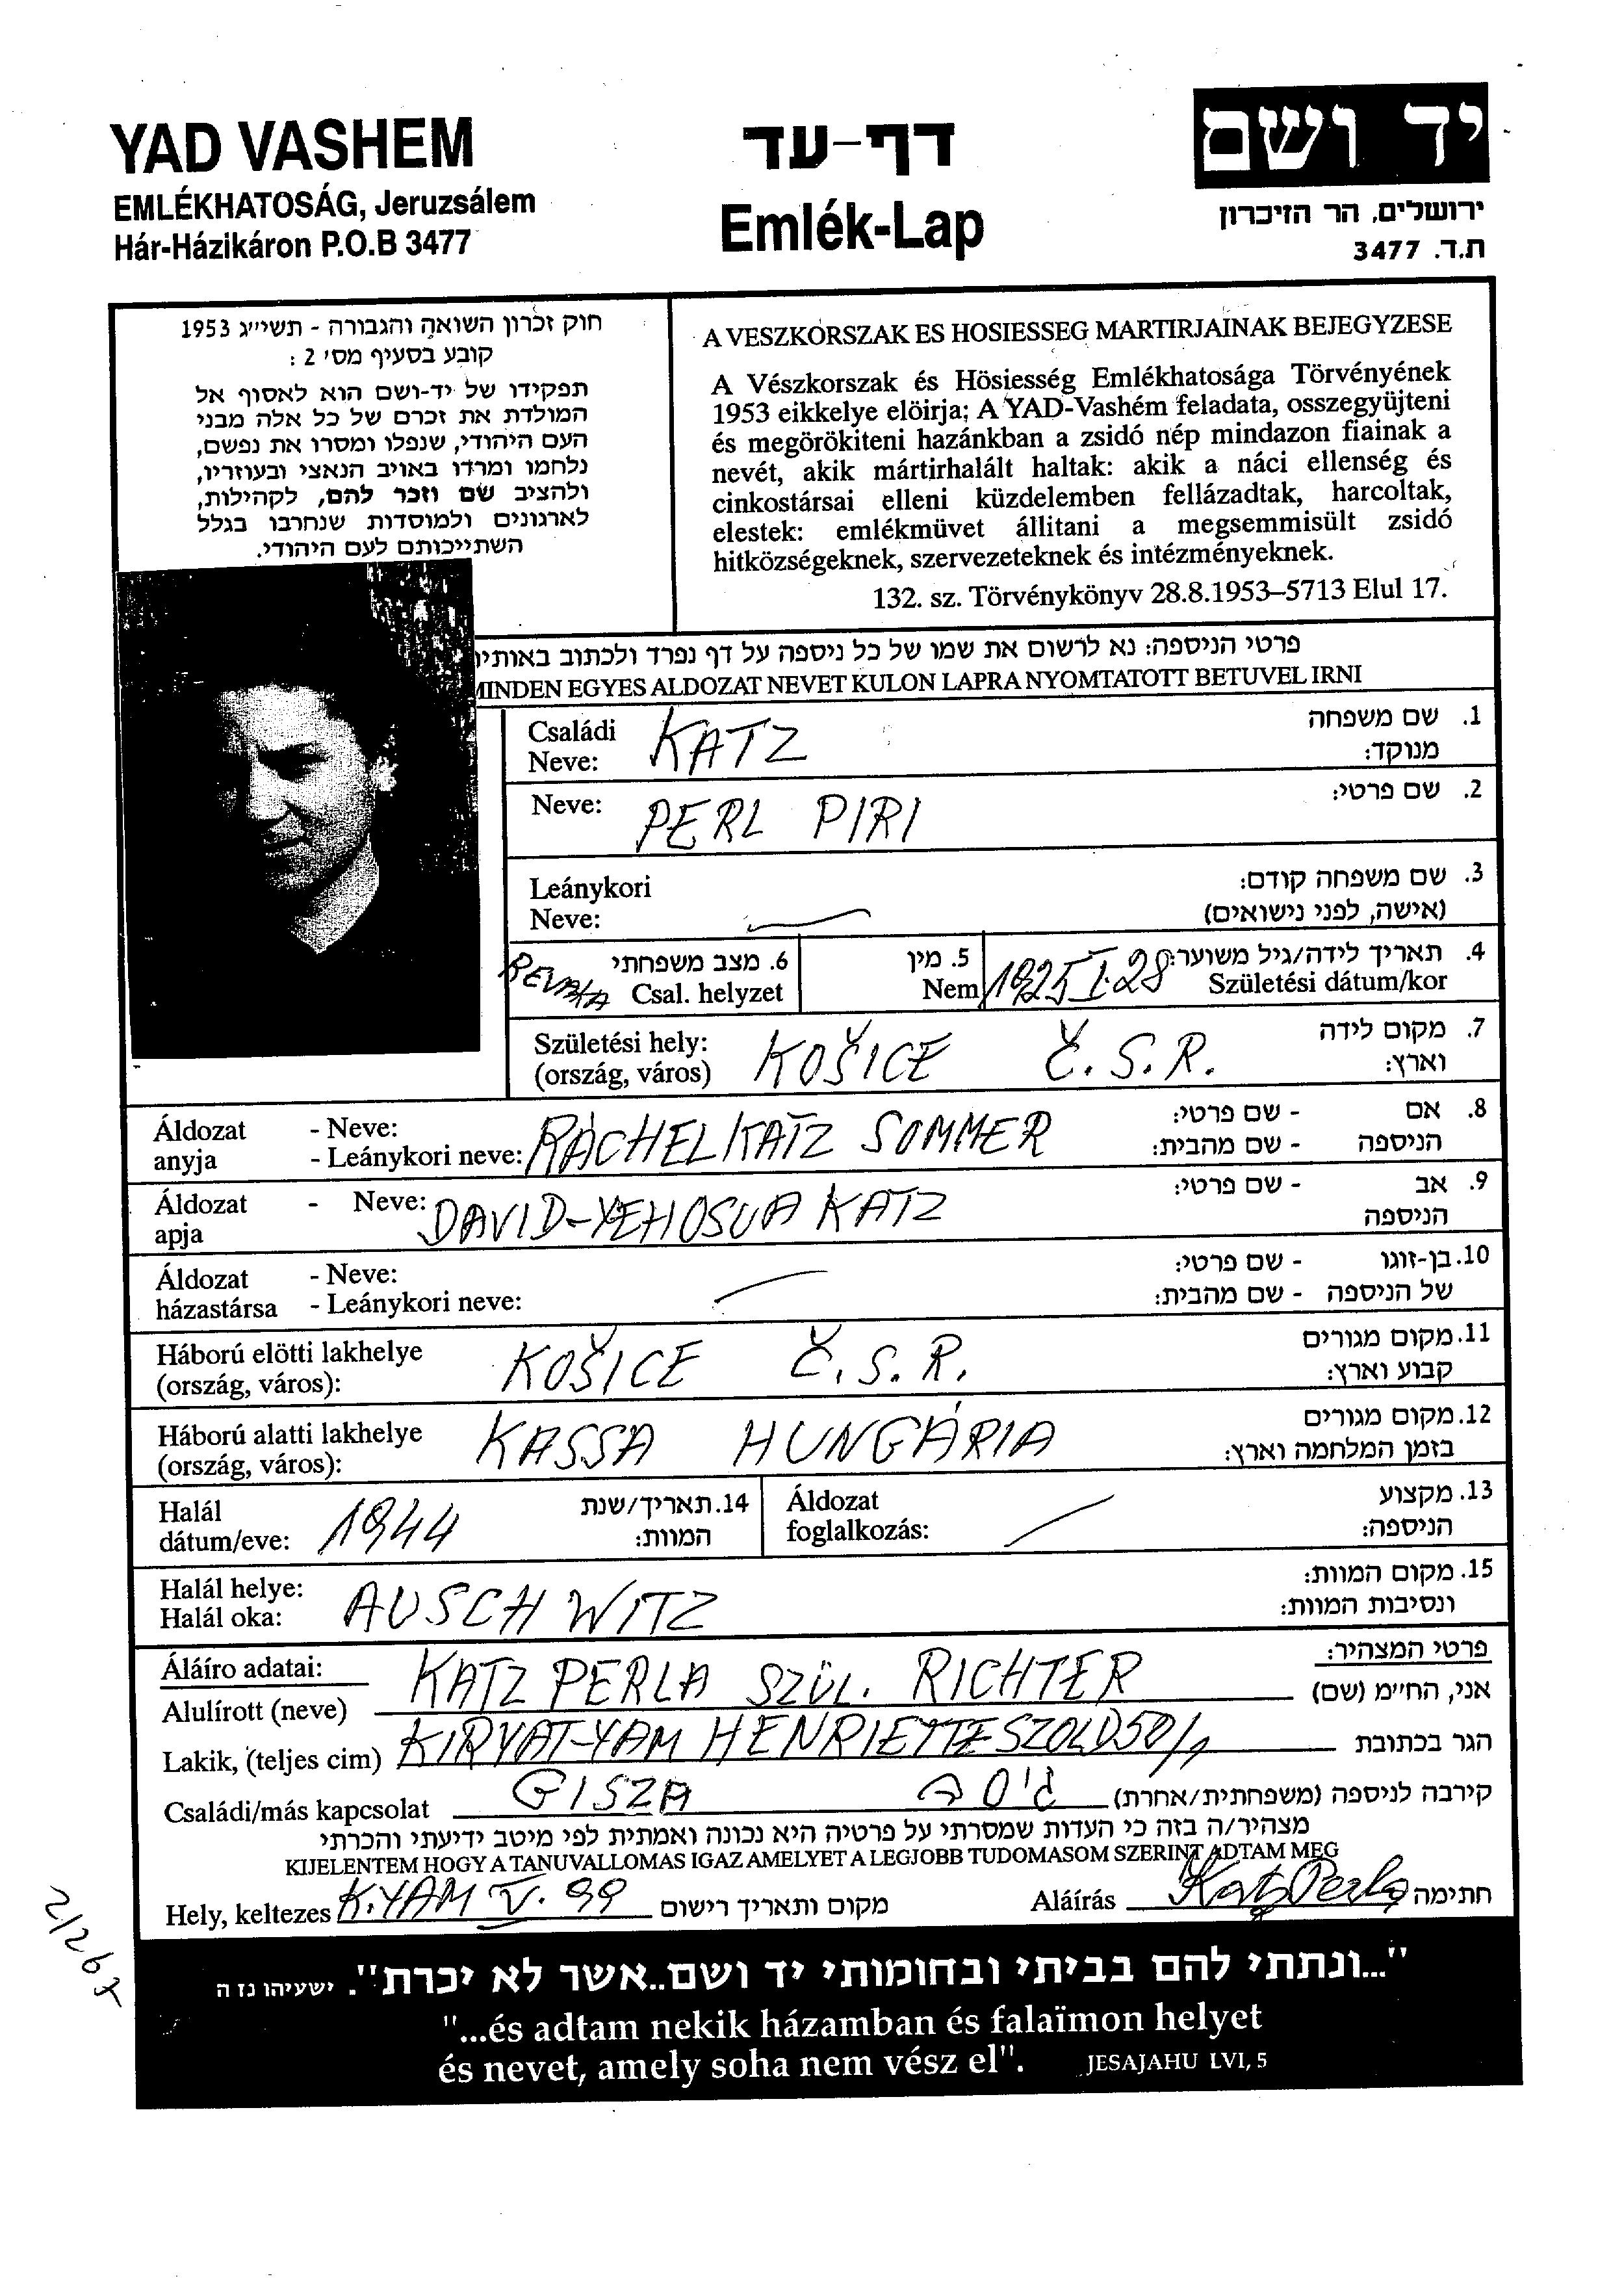 YAD VASHEM
EMLÉKHATOSÁG, Jeruzsálem
Hár-Házikáron P.O.B 3477
דף-עד
Emlék-Lap
יד ושם
ירושלים, הר הזיכרון
ת.ד. 3477
חוק זכרון השואה והגבורה - תשי״ג 1953
קובע בסעיף מס׳ 2 :
תפקידו של יד-ושם הוא לאסוף אל
המולדת את זכרם של כל אלה מבני
העם היהודי, שנפלו ומסרו את נפשם,
נלחמו ומרדו באויב הנאצי ובעוזריו,
ולהציב שם וזכר להם, לקהילות,
לארגונים ולמוסדות שנחרבו בגלל
השתייכותם לעם היהודי.
A VESZKORSZAK ES HOSIESSEG MARTIRJAINAK BEJEGYZESE
A Vészkorszak és Hösiesség Emlékhatosága Törvényének
1953 eikkelye elöirja; A YAD-Vashém feladata, osszegyüjteni
és megörökiteni hazánkban a zsidó nép mindazon fiainak a
nevét, akik mártirhalált haltak: akik a náci ellenség és
cinkostársai elleni küzdelemben fellázadtak, harcoltak,
elestek: emlékmüvet állitani a megsemmisült zsidó
hitközségeknek, szervezeteknek és intézményeknek.
132. sz. Törvénykönyv 28.8.1953–5713 Elul 17.
פרטי הניספה: נא לרשום את שמו של כל ניספה על דף נפרד ולכתוב באותיו
MINDEN EGYES ALDOZAT NEVET KULON LAPRA NYOMTATOTT BETUVEL IRNI
Családi Neve: KATZ 1. שם משפחה מנוקד:
Neve: PERL PIRI 2. שם פרטי:
Leánykori Neve: 3. שם משפחה קודם: (אישה, לפני נישואים)
6. מצב משפחתי Csal. helyzet 5. מין Nem 1925 I. 28 4. תאריך לידה/גיל משוער: Születési dátum/kor
Születési hely: (ország, város) KOŠICE Č.S.R. 7. מקום לידה וארץ:
Áldozat anyja - Neve: - Leánykori neve: RACHEL KATZ SOMMER 8. אם הניספה - שם פרטי: - שם מהבית:
Áldozat apja - Neve: DAVID-YEHOSUA KATZ 9. אב הניספה - שם פרטי:
Áldozat házastársa - Neve: - Leánykori neve: 10. בן-זוגו של הניספה - שם פרטי: - שם מהבית:
Háború elötti lakhelye (ország, város): KOŠICE Č.S.R. 11. מקום מגורים קבוע וארץ:
Háború alatti lakhelye (ország, város): KASSA HUNGÁRIA 12. מקום מגורים בזמן המלחמה וארץ:
Halál dátum/eve: 1944 14. תאריך/שנת המוות: Áldozat foglalkozás: 13. מקצוע הניספה:
Halál helye: Halál oka: AUSCHWITZ 15. מקום המוות: ונסיבות המוות:
Aláíro adatai: פרטי המצהיר:
Alulírott (neve) KATZ PERLA SZÜL. RICHTER אני, החי״מ (שם)
Lakik, (teljes cim) KIRYAT-YAM HENRIETTE SZOLD 50/1 הגר בכתובת
Családi/más kapcsolat GISZA גיסה קירבה לניספה (משפחתית/אחרת)
מצהיר/ה בזה כי העדות שמסרתי על פרטיה היא נכונה ואמתית לפי מיטב ידיעתי והכרתי
KIJELENTEM HOGY A TANUVALLOMAS IGAZ AMELYET A LEGJOBB TUDOMASOM SZERINT ADTAM MEG
Hely, keltezes K.YAM V. 99 מקום ותאריך רישום Aláírás Katz Perla חתימה
"...ונתתי להם בביתי ובחומותי יד ושם..אשר לא יכרת". ישעיהו נז ה
"...és adtam nekik házamban és falaïmon helyet
és nevet, amely soha nem vész el". JESAJAHU LVI, 5